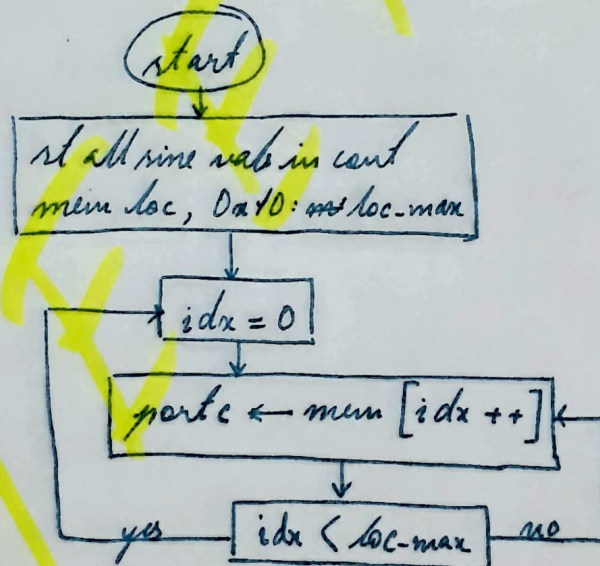 start
st all sine vals in cont
mem loc, 0x10: loc-max
idx = 0
portc ← mem [idx ++]
idx < loc-max
yes
no